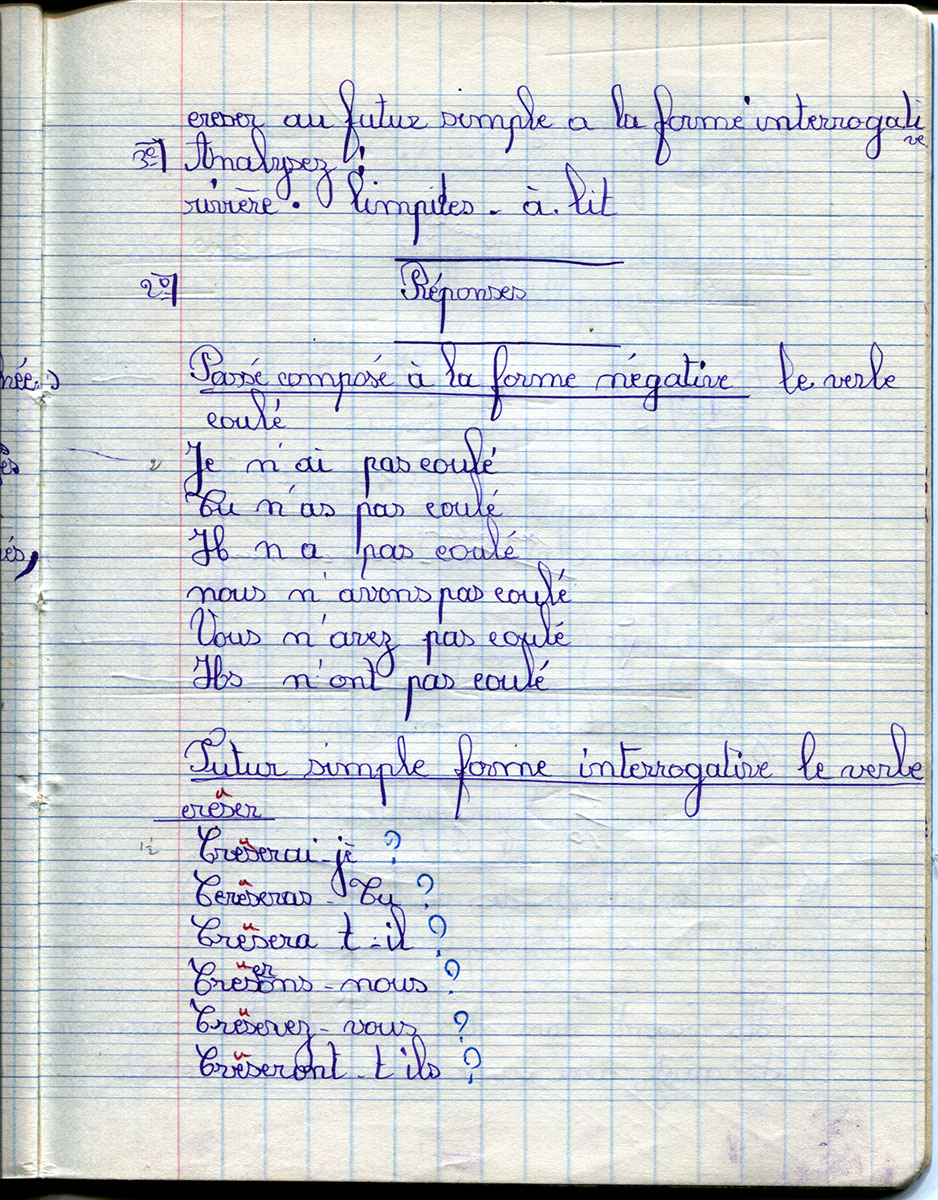 creser au futur simple a la forme interrogati
ve
3º/ Analysez :
rivière. limpides - à. lit
2º/ Réponses
née.s
Passé composé à la forme négative le verbe
coulé
Je n'ai pas coulé
Tu n'as pas coulé
Il n a pas coulé
nous n'avons pas coulé
Vous n'avez pas coulé
Ils n'ont pas coulé
Futur simple forme interrogative le verbe
creuser
Creuserai-je ?
Cereuseras - Tu ?
Creusera t-il ?
Creuserons - nous ?
Creuserez - vous ?
Creuseront - t ils ?